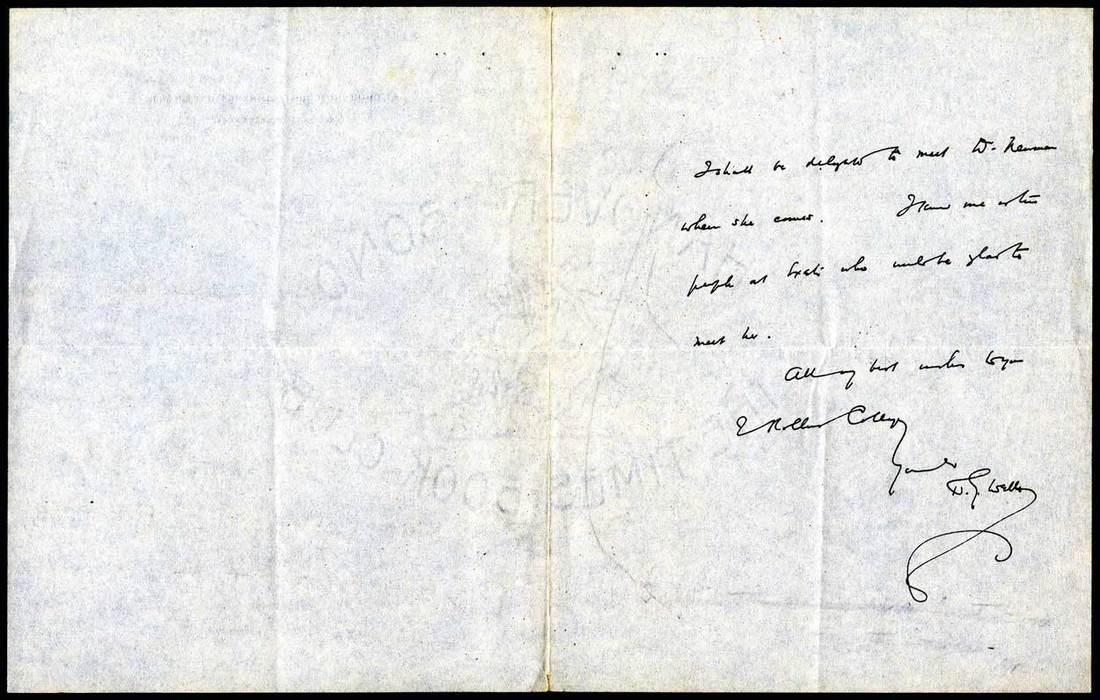 I shall be delighted to meet Dr. Newman
when she comes. I know one or two
people at who would be glad to
meet her.
All my best wishes to you
& Rollins College
Yours
H. G. Wells
TIMES BOOK C